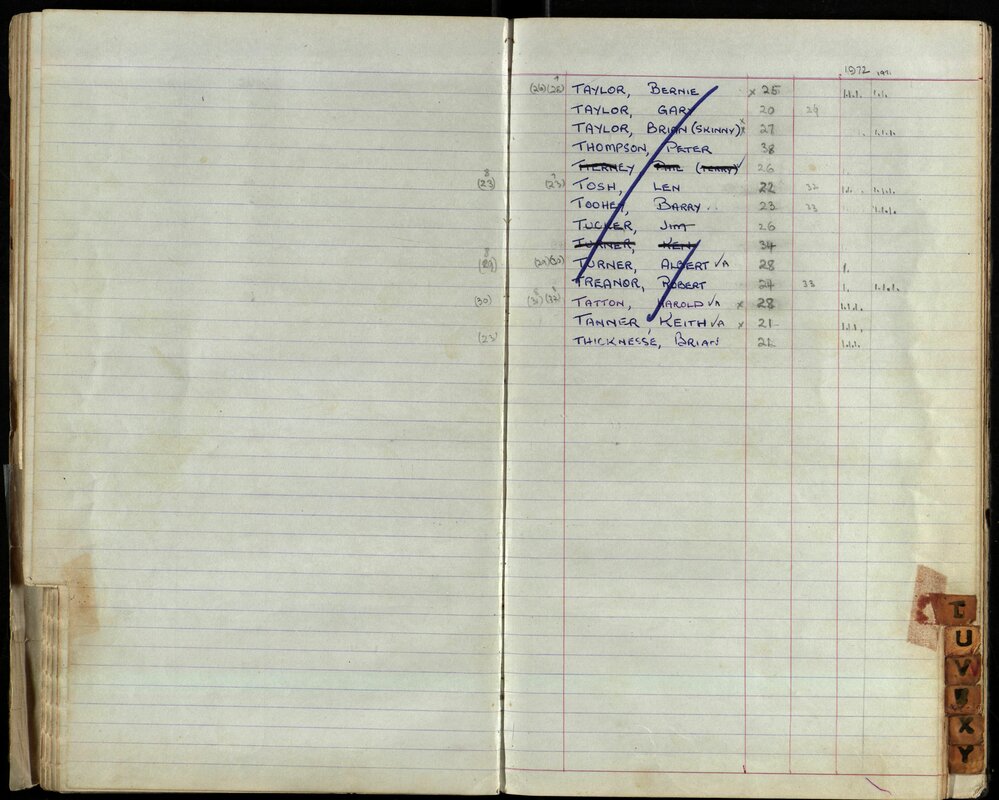 1972 1971
(26) (28) TAYLOR, BERNIE x 25
TAYLOR, GARY 20 29
TAYLOR, BRIAN (SKINNY) x 27
THOMPSON, PETER 38
TIERNEY PHIL (TERRY) 26
(23) (23) TOSH, LEN 22 32
TOOHEY, BARRY. 23 33
TUCKER, JIM 26
TURNER, KEN 34
(29) (29) (30) TURNER, ALBERT √A 28
TREANOR, ROBERT 24 33
(30) (31) (32) TATTON, HAROLD √A x 28
TANNER, KEITH √A x 21
(23) THICKNESSE, BRIAN 22
T
U
V
X
Y